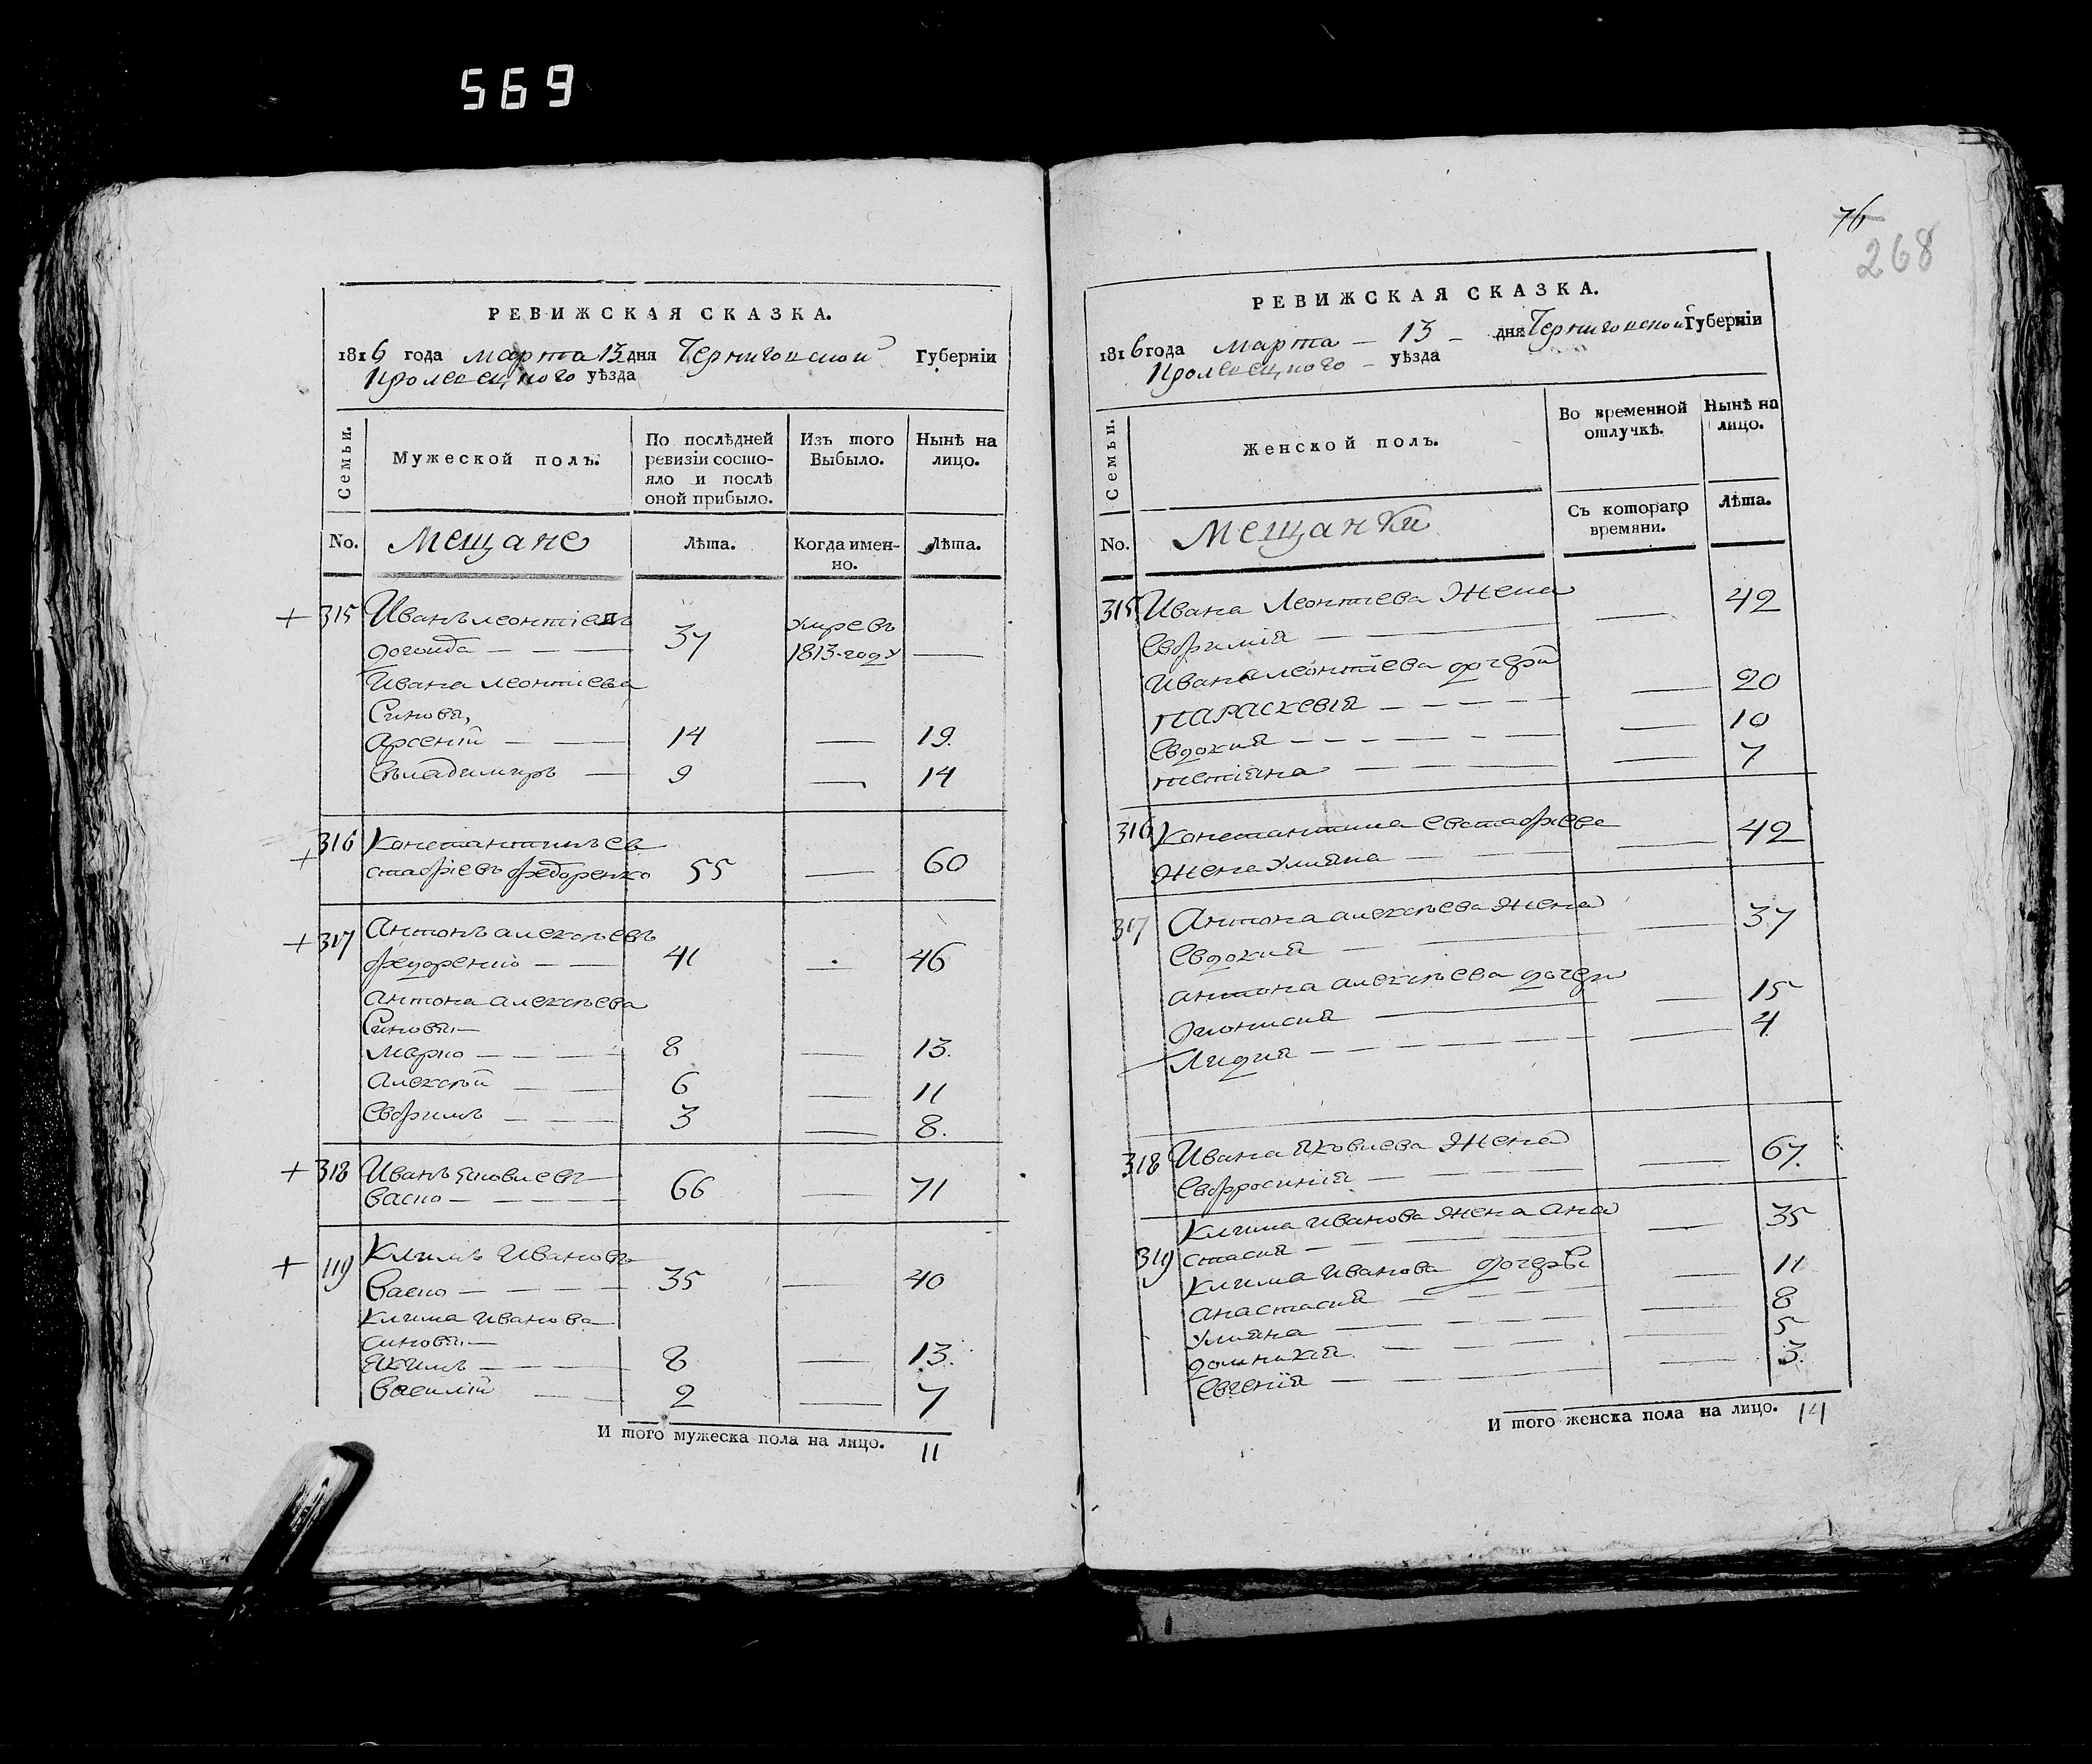 569
РЕВИЖСКАЯ СКАЗКА.
1816 года марта 13 дня Черниговской Губерніи
Кролевецкого уѣзда
Семьи.
Мужеской полъ.
По послѣдней ревизіи состо-
яло и послѣ
оной прибыло.
Изъ того
Выбыло.
Нынѣ на
лицо.
No.
Мещане
Лѣта.
Когда имен-
но.
Лѣта.
+ 315 Иванъ леонтіевъ
37 умре въ
1813-году —
Ивана леонтіева
Синовя,
арсеній — — 14 — 19.
Въладимиръ — 9 — 14
+ 316 Константинъ ев
стафіевъ федоренко 55 — 60
+ 317 Антонъ алексѣевъ
федоренко — — 41 — 46
антона алексѣева
Синовя —
марко — — — 8 — 13.
алексѣй — — 6 — 11
Ефримъ — — 3 — 8.
+ 318 Иванъ яковлевъ
Васко — — — — 66 — 71
+ 119 Климъ Ивановъ
Васко — — — — 35 — 40
Клима иванова
синовя —
якимъ — — — 8 — 13.
Василій — — 2 — 7
И того мужеска пола на лицо. 11
76
268
РЕВИЖСКАЯ СКАЗКА.
1816 года марта — 13 — дня Черниговской Губерніи
Кролевецкого — уѣзда
Семьи.
Женской полъ.
Во временной
отлучкѣ.
Нынѣ на
лицо.
No.
Мещанки
Съ котораго
времяни.
Лѣта.
315 Ивана Леонтіева жена
Евфимія — — — 42
Ивана леонтіева дочери
параскевія — — — — 20
Евдокия — — — — 10
тетіяна — — — — 7
316 Константина евстафіева
жена улияна — — — 42
317 Антона алексѣева жена
Евдокия — — — 37
антона алексѣева дочери
дионисия — — 15
Лидия — — — — 4.
318 Ивана яковлева жена
Евфросинія — — — 67.
319 Клима иванова жена ана
стасия — — — 35
Клима иванова дочерѣ
анастасия — — — 11
улияна — — — 8
домникия — — — 5
евгенія — — — 3.
И того женска пола на лицо. 14